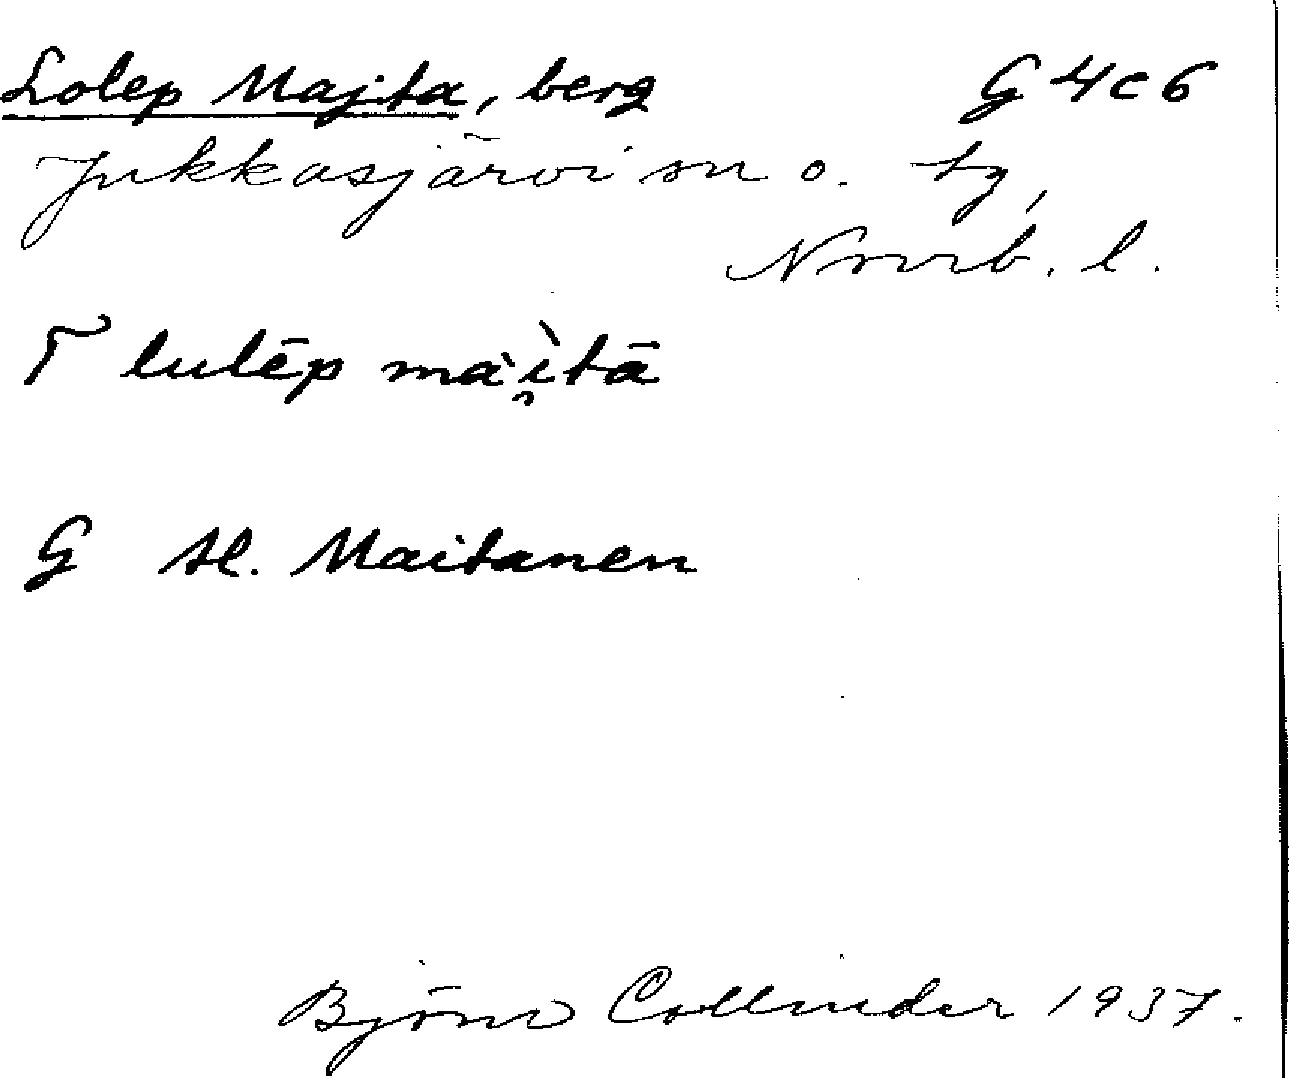 Lolep Majta, berg G 4c6
Jukkasjärvi sn o. tg,
Norrb. l.
T lulēp màì̯tā
G H. Maitanen
Björn Collinder 1937.